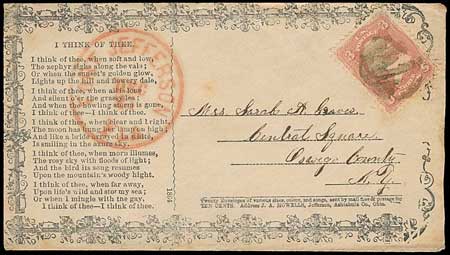 I THINK OF THEE.
I think of thee, when soft and low,
The zephyr sighs along the vale;
Or when the sunset's golden glow,
Lights up the hill and flowery dale,
I think of thee, when all is lone
And silent
And when the howling storm is gone,
I think of thee—I think of thee.
I think of thee, when clear and bright,
The moon has hung her lamp on high;
And like a bride arrayed in white,
Is smiling in the azure sky.
I think of thee, when morn illumes,
The rosy sky with floods of light;
And the bird its song resumes
Upon the mountain's woody hight.
I think of thee, when far away,
Upon life's wild and stormy sea;
Or when I mingle with the gay,
I think of thee—I think of thee.
JEFFERSON
Mrs. Sarah A. Graves
Central Square
Oswego County
N. Y.
Twenty Envelopes of various sizes, colors, and songs, sent by mail free of postage for
TEN CENTS. Address J. A. HOWELLS, Jefferson, Ashtabula Co., Ohio.